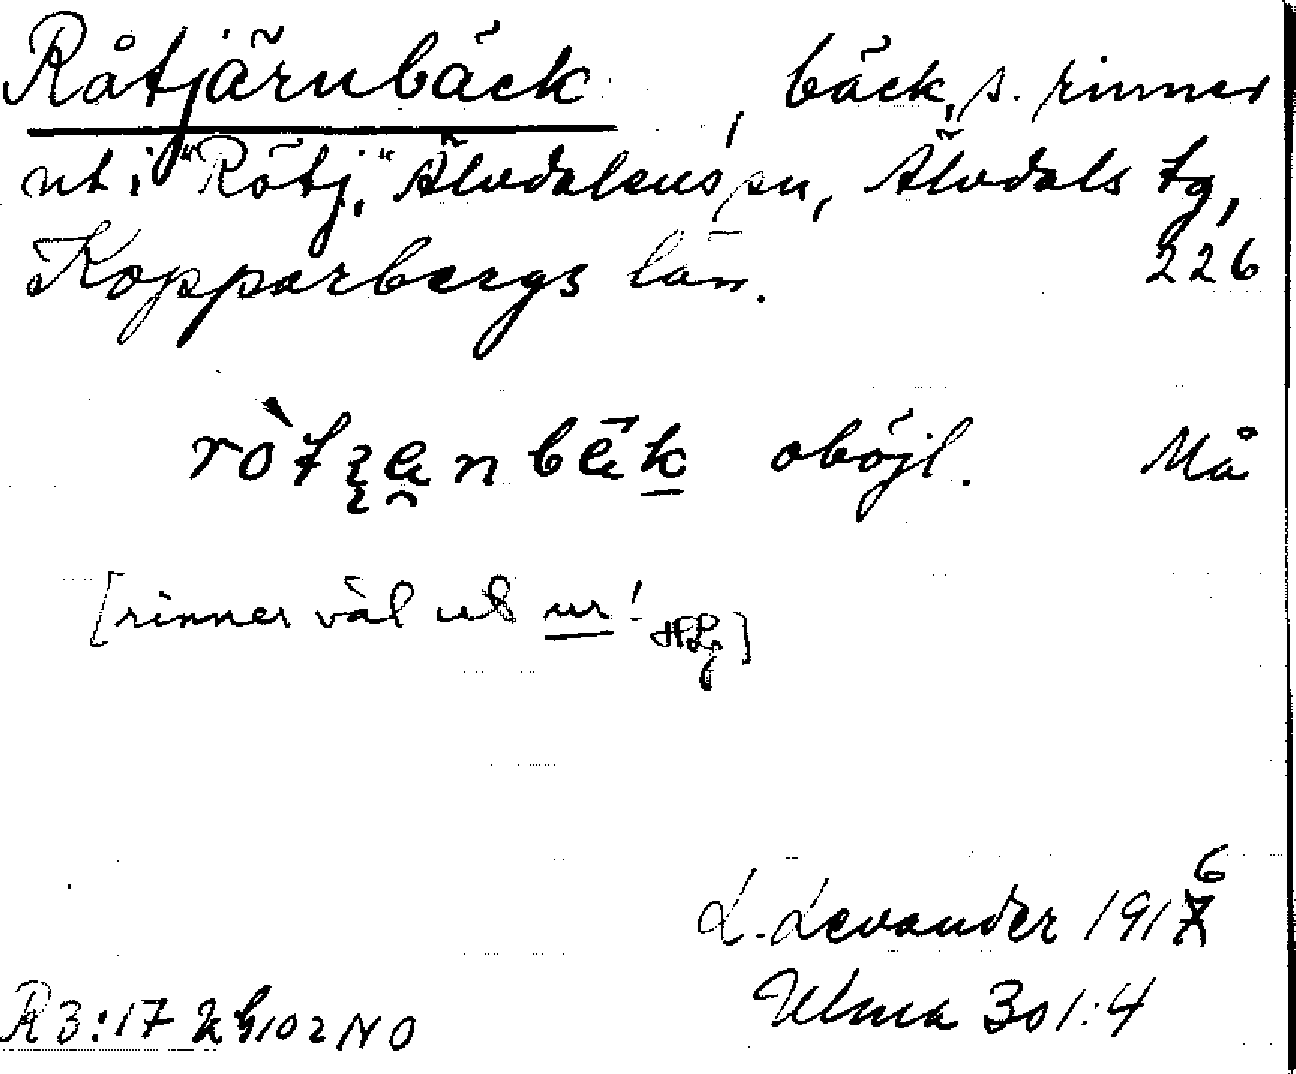 Råtjärnbäck, bäck, s. rinner
ut i "Rötj." Älvdalens sn, Älvdals tg,
Kopparbergs län. 226
oböjl. Må
[rinner väl ut ur! HLg]
L. Levander 1916
Ulma 301:4
R3:17 102 NO